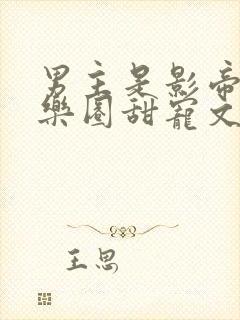 男主是影帝
樂園甜寵文
王思